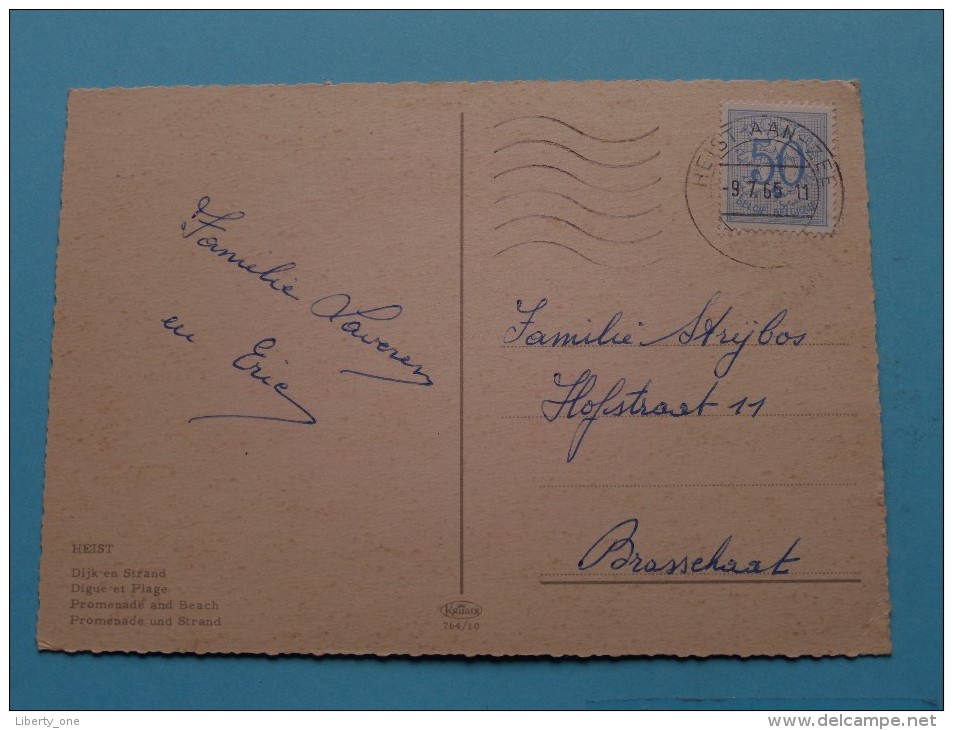 Familie Laveren
en Eric
HEIST
Dijk en Strand
Digue et Plage
Promenade and Beach
Promenade und Strand
764/10
HEIST-AAN-ZEE
-9.7.65 11
50
BELGIE - BELGIQUE
Familie Strijbos
Hofstraat 11
Brasschaat
Liberty_one
delcampe.net